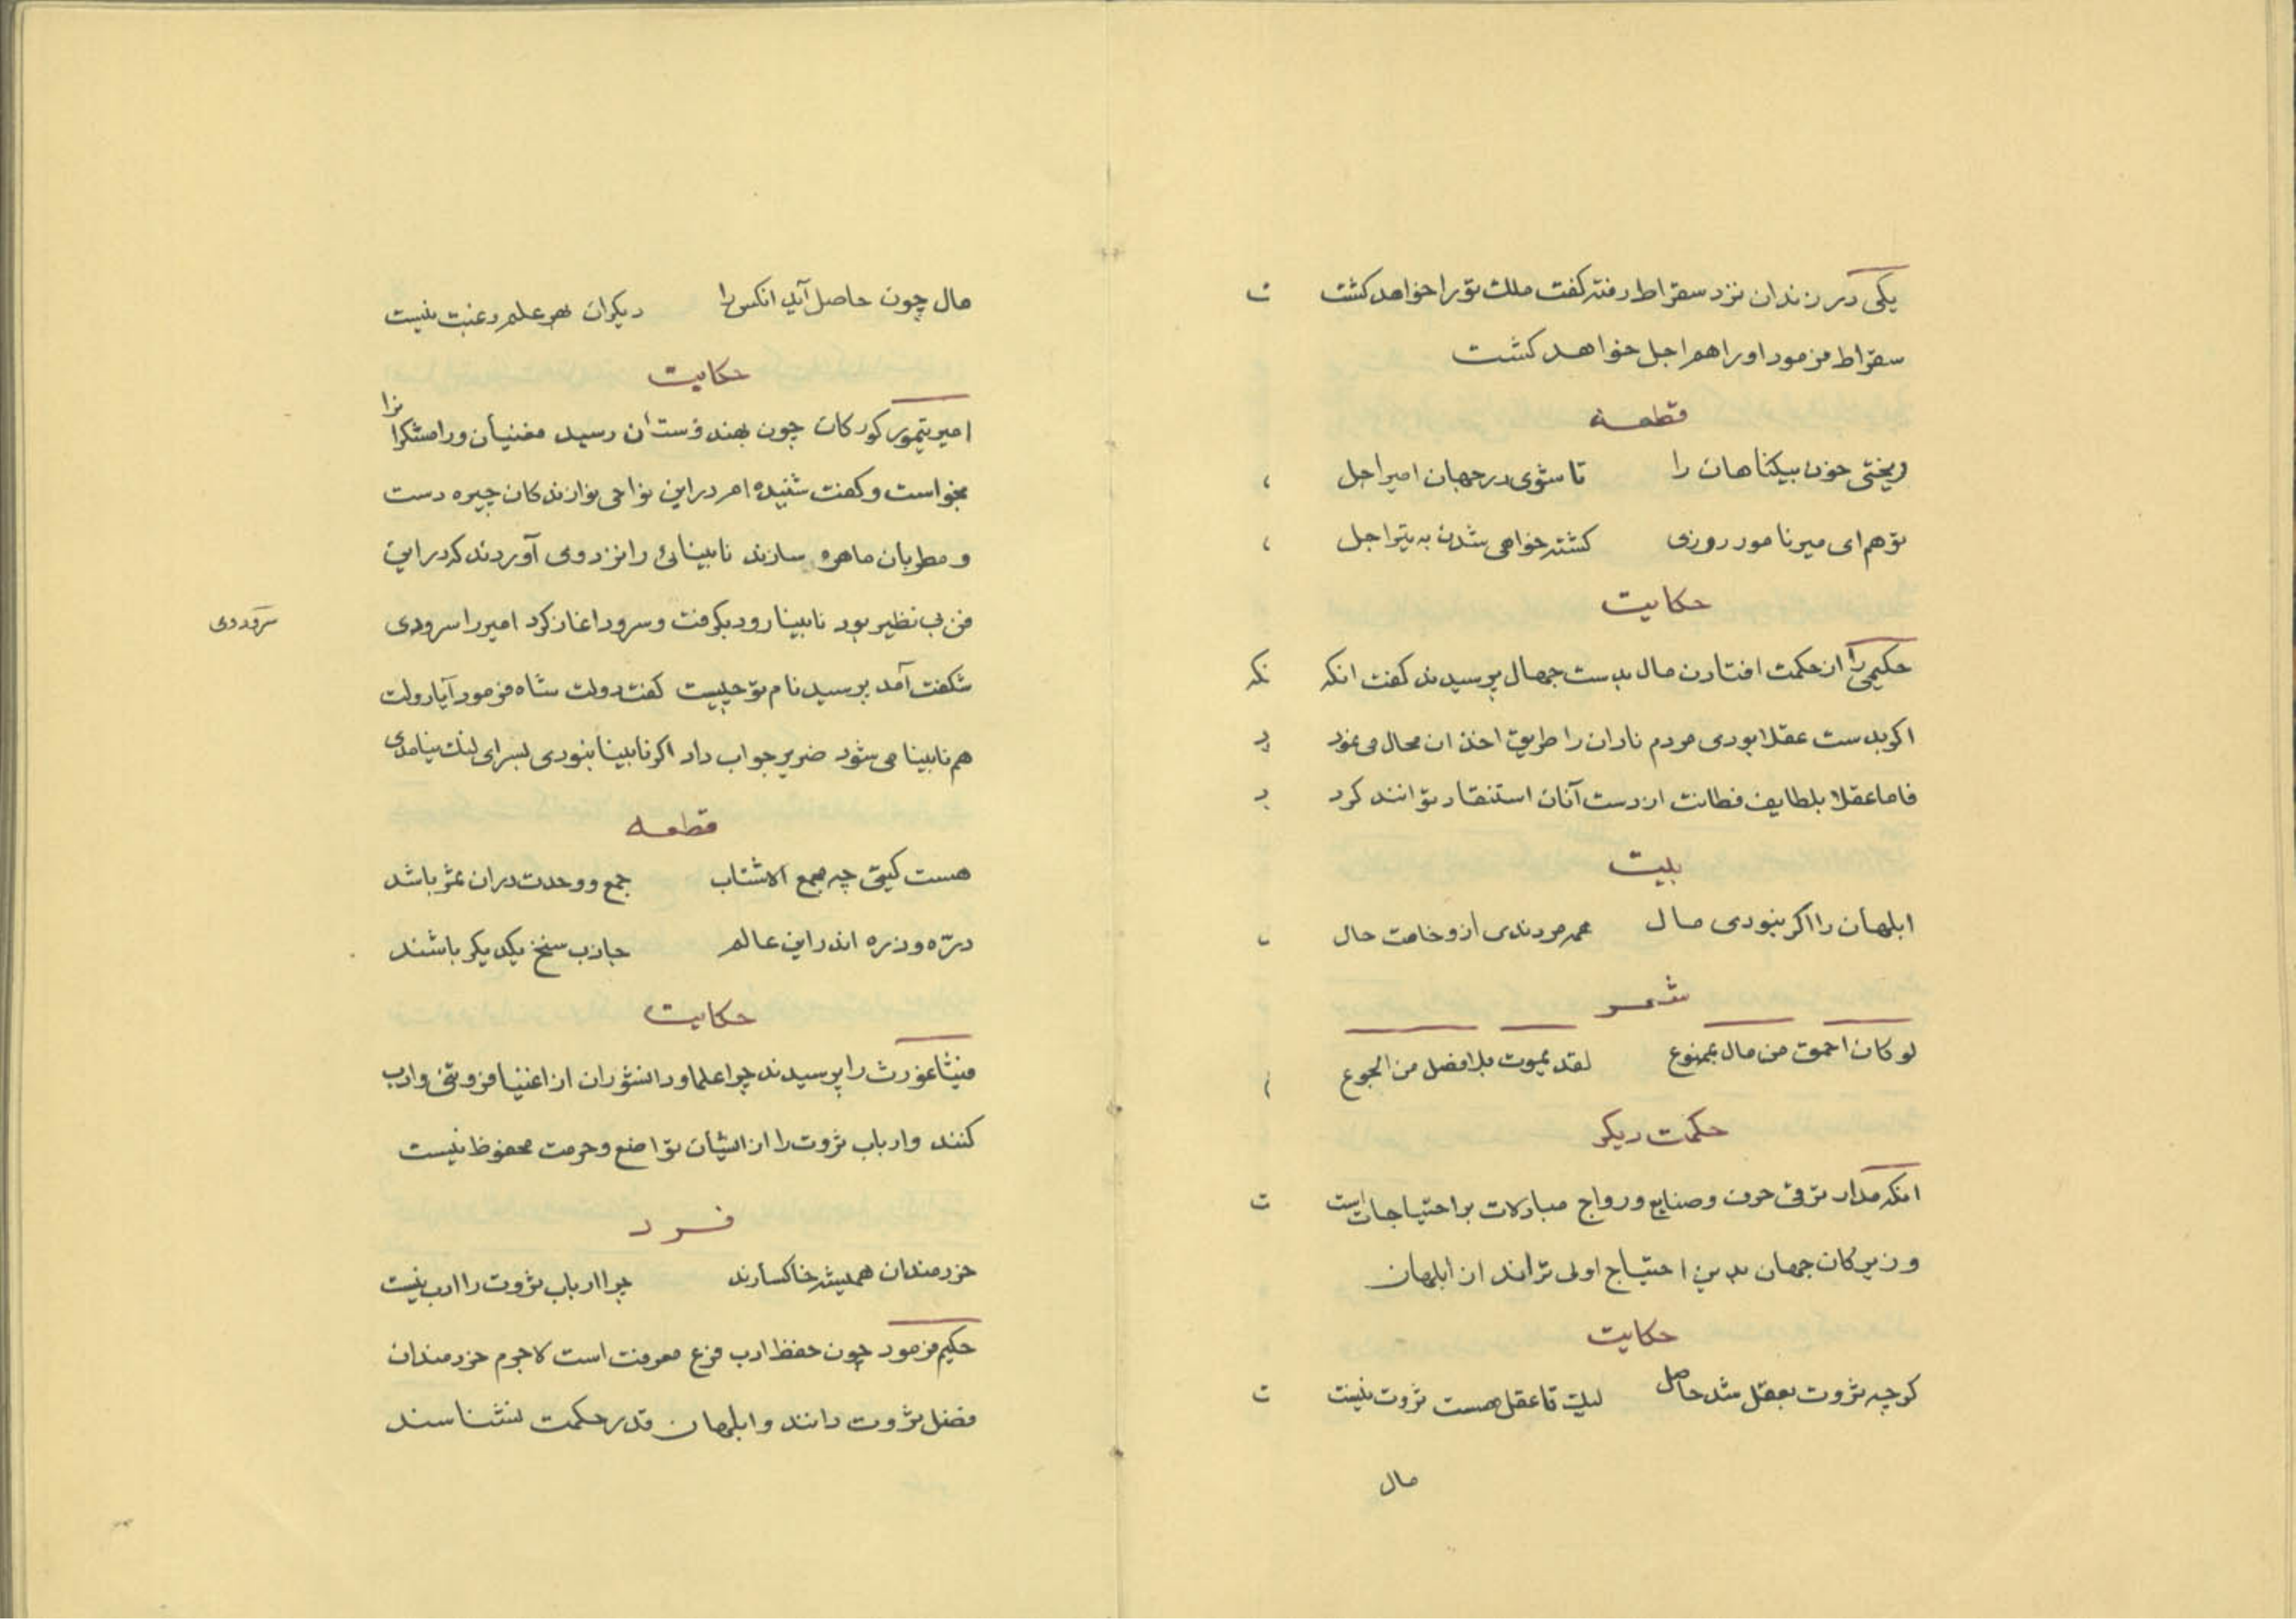 یکی در زندان نزد سقراط رفته کفت ملک تو را خواهد کشت
ت
سقراط فرمود او را هم اجل خواهد کشت
قطعه
ریختی خون بیکناهان را تا شوی در جهان امیر اجل
تو هم ای میر نامور روزی کشته خواهی شدن به تیر اجل
حکایت
حکیمی را از حکمت افتادن مال بدست جهال پرسیدند کفت انکه
نکه
اکر بدست عقلا بودی مردم نادان را طریق اخذ ان محال می نمود
د
فاما عقلا بلطایف فطانت از دست آنان استنقاد توانند کرد
د
بیت
ابلهان را اکر نبودی مال همه مردندی از وخامت حال
شعر
لو کان احمق من مال بممنوع لقد یموت بلا فضل من الجوع
حکمت دیکر
انکه مدار ترقی حرف و صنایع و رواج مبادلات بر احتیاجات است
ت
و زیرکان جهان بدین احتیاج اولی تراند از ابلهان
حکایت
کرچه ثروت بعقل شد حاصل لیک تا عقل هست ثروت نیست
ت
مال
مال چون حاصل آید انکس را دیکران بهر علم رغبت نیست
حکایت
امیر تیمور کورکان چون بهندوستان رسید مغنیان و رامشکران را
بخواست و کفت شنیده ام در این نواحی نوازندکان چیره دست
و مطربان ماهره سازند نابینائی را نزد وی آوردند که در این
فن بی نظیر بود نابینا رود بکرفت و سرود اغاز کرد امیر را سرودی
سرودی
شکفت آمد پرسید نام تو چیست کفت دولت شاه فرمود آیا دولت
هم نابینا می شود ضریر جواب داد اکر نابینا نبودی بسرای لنک نیامدی
قطعه
هست کیتی چه مجمع الاشتاب جمع و وحدت دران ثمر باشد
درّه و ذره اندر این عالم جاذب سنخ یکدیکر باشند
حکایت
فیثاغورث را پرسیدند چرا علما و دانشوران از اغنیا فروتنی و ادب
کنند و ارباب ثروت را از ایشان تواضع و حرمت محفوظ نیست
فرد
خردمندان همیشه خاکسارند چرا ارباب ثروت را ادب نیست
حکیم فرمود چون حفظ ادب فرع معرفت است لاجرم خردمندان
فضل ثروت دانند و ابلهان قدر حکمت نشناسند